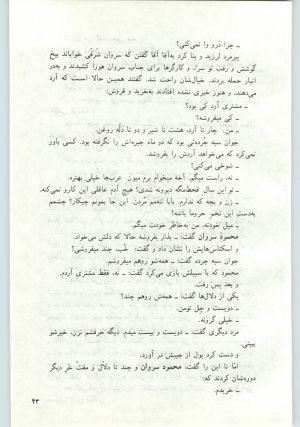 ـ چرا درو را نمی‌کنی؟
پیرمرد لرزید و بنا کرد به‌آقا آقا گفتن که سروان شَرَقّی خواباند بیخ
گوشش و رفت تو سرا. و کارگرها برای جناب سروان هورا کشیدند و به‌در
انبار حمله بردند. خیال‌شان راحت شد. گفتند همین حالا است که آرد
می‌دهند، و هنوز خبری نشده افتادند به‌خرید و فروش:
ـ مشتری آرد کی بود؟
ـ کی میفروشه؟
ـ من. چار تا آرد، هشت تا شیر و دو تا دلّه روغن.
جوان سیه چُرده‌ئی بود که دو ماه جیره‌اش را نگرفته بود. کسی باور
نمی‌کرد که می‌خواهد آردش را بفروشد.
ـ شوخی می‌کنی؟
ـ نه، راست میگم. آخه میخوام برم میون عرب‌ها خیلی بهتره.
ـ تو این سال قحط‌مگه دیوونه شدی؟ هیچ آدم عاقلی این کارو نمی‌کنه.
ـ زن و بچه که ندارم. بابا ننه‌مم مُردن. این جا بمونم چیکار؟ چشمم
به‌دستِ این تخم حروما باشه؟
ـ میل خودته، من به‌خاطر خودت میگم.
محمود سروان گفت: ـ بذار بفروشه حالا که دلش می‌خواد.
و اسکناس‌هایش را نشان داد و گفت: خُب، چند میفروشی؟
جوان سیه چرده گفت: ـ همه‌شو روهم میفروشم.
محمود که با سبیلش بازی می‌کرد گفت: ـ نه، فقط مشتری آردم.
و بعد پس رفت.
یکی از دلال‌ها گفت: ـ همه‌ش روهم چند؟
ـ دویست و چل تومن.
ـ خیلی گرونه.
مرد دیگری گفت: ـ دویست و بیست میدم. دیگه حرفشم نزن، خیرشو
ببینی.
و دست کرد پول از جیبش در آورد.
امّا تا این را گفت، محمود سروان و چند تا دلّال و مفت خر دیگر
دوره‌شان کردند که:
ـ خریدم.
۴۳